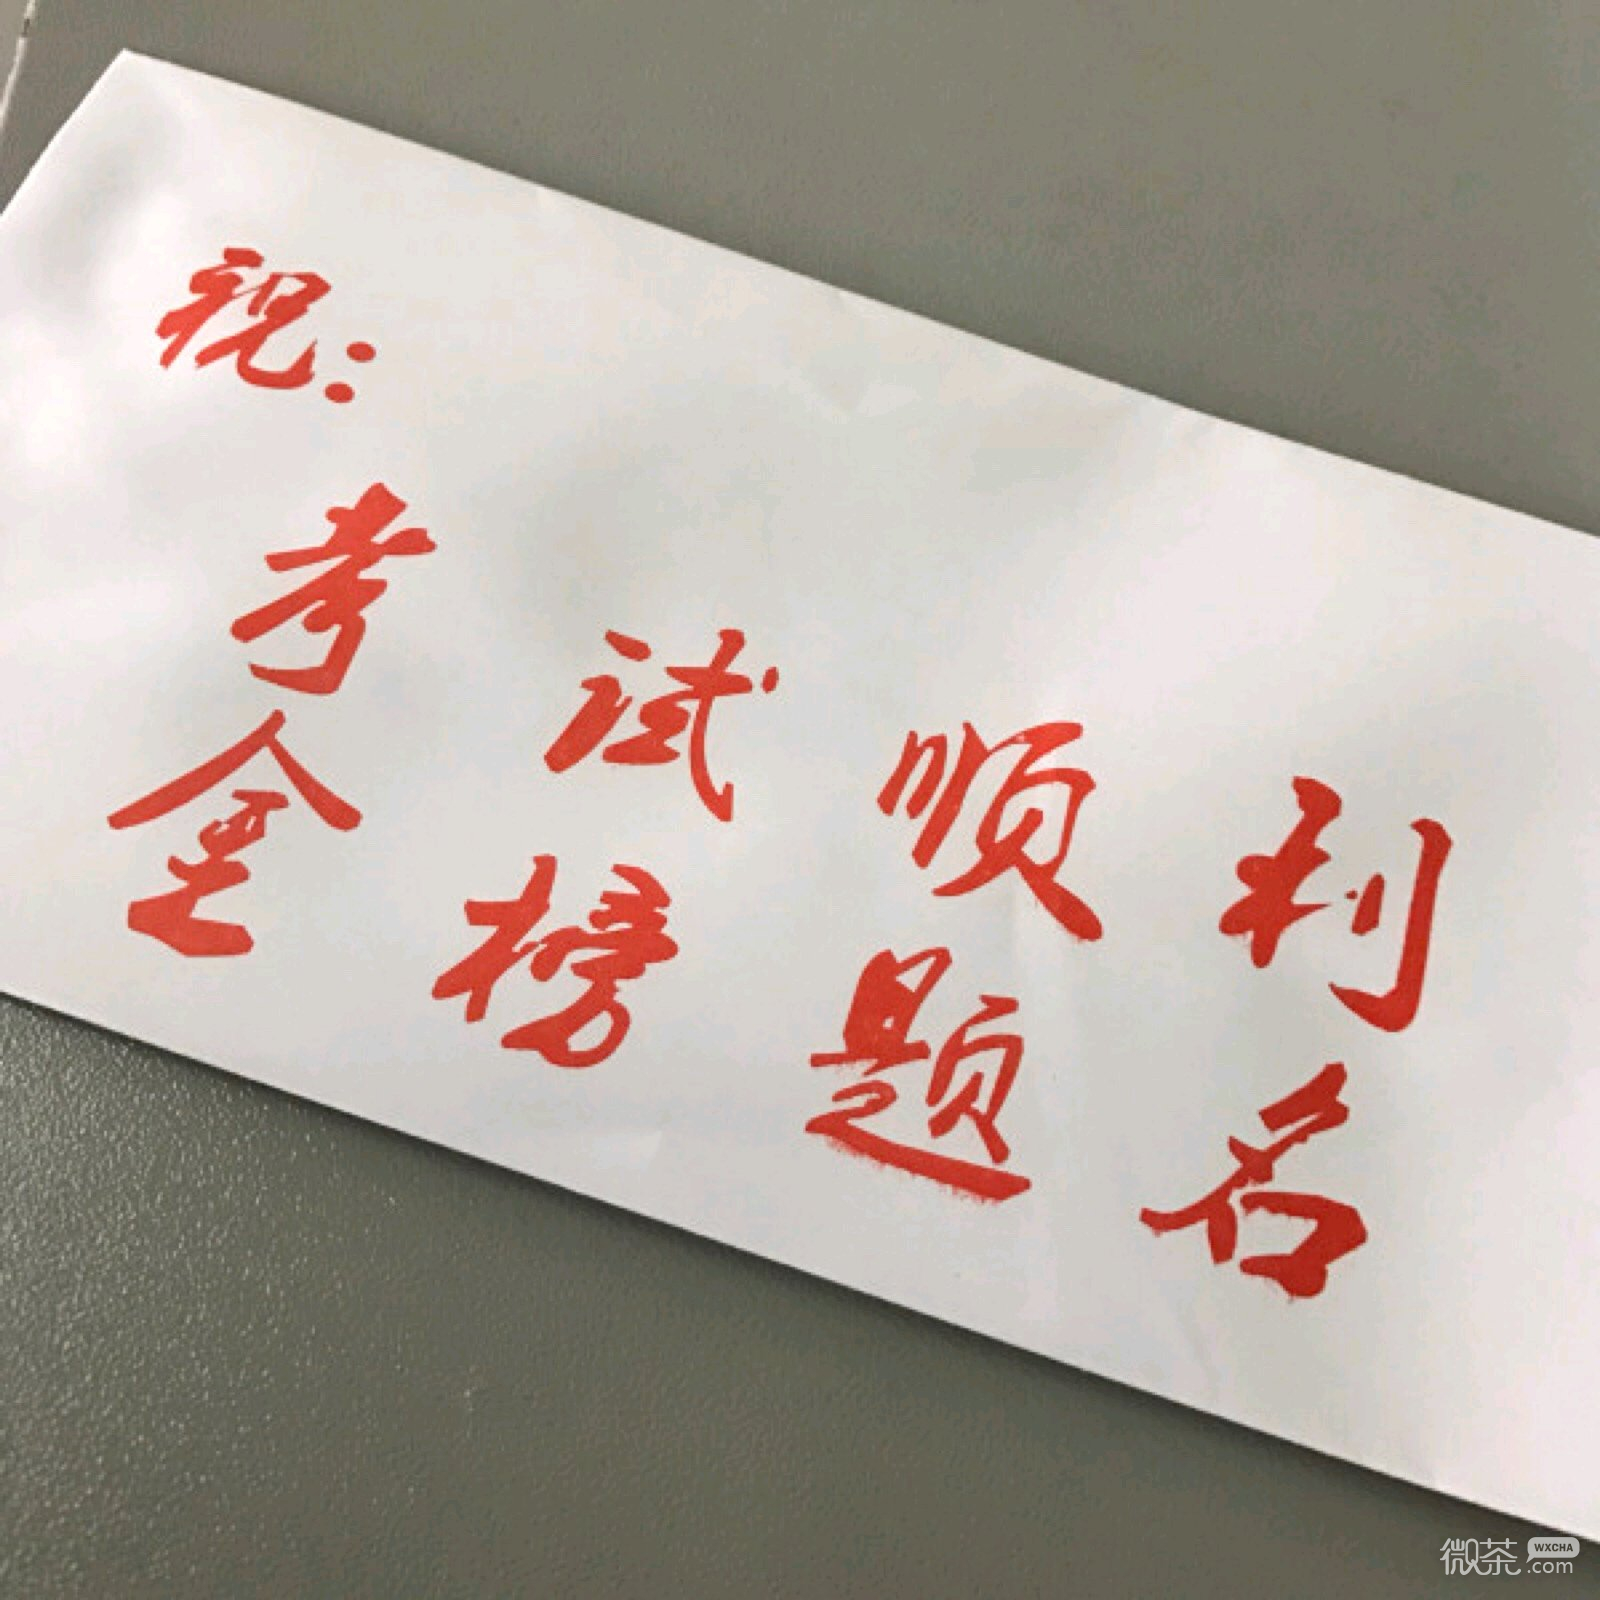 祝：
考试顺利
金榜题名
微茶 WXCHA
.com